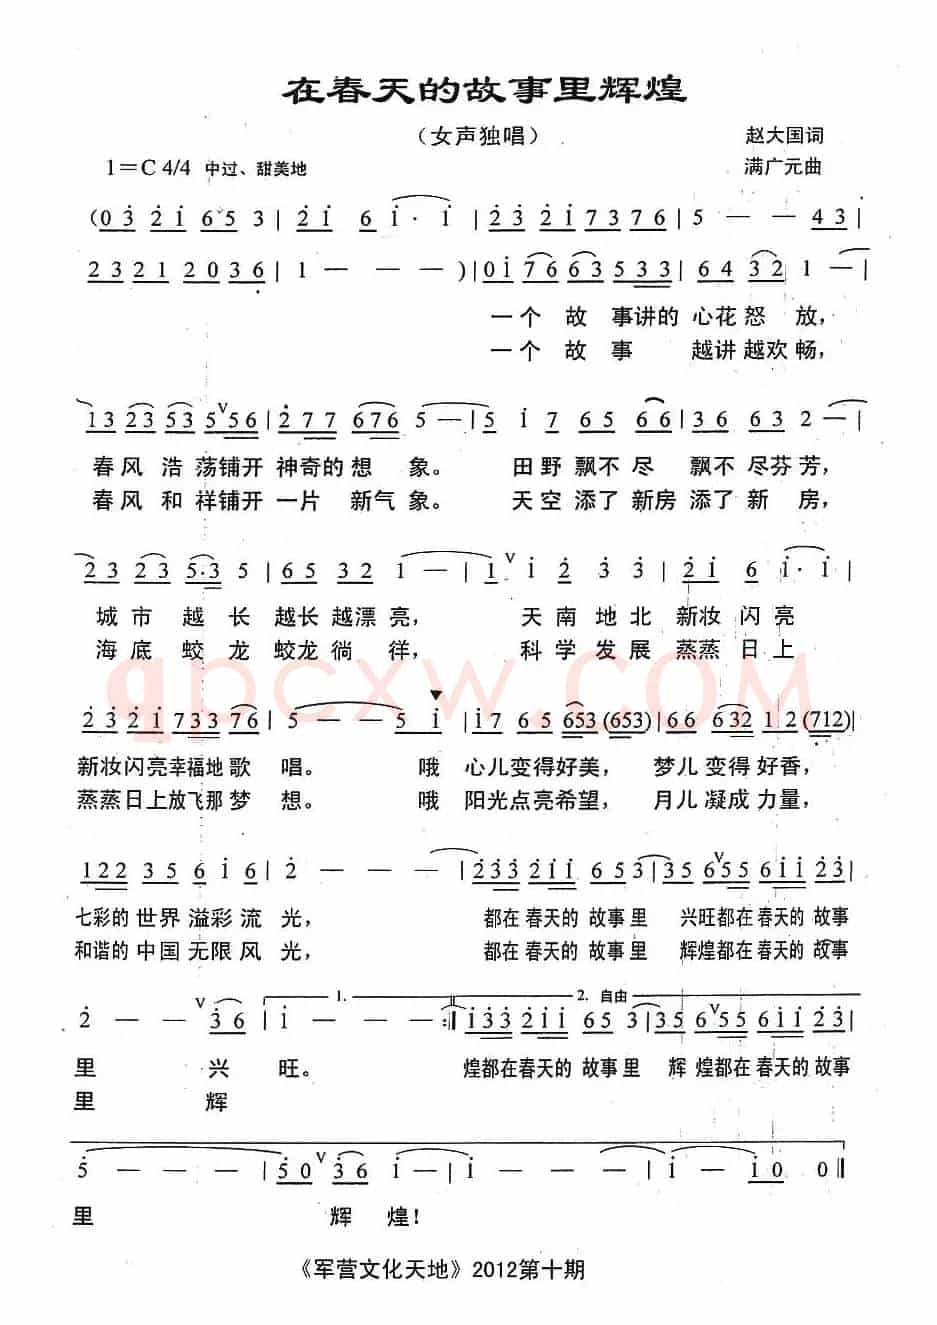 在春天的故事里辉煌
（女声独唱）
赵大国词
1＝C 4/4 中过、甜美地
满广元曲
(0 3 2 1 6 5 3 | 2 1 6 1 · 1 | 2 3 2 1 7 3 7 6 | 5 — — 4 3 |
2 3 2 1 2 0 3 6 | 1 — — — ) | 0 1 7 6 6 3 5 3 3 | 6 4 3 2 1 — |
一个 故 事讲的 心花 怒 放，
一个 故 事 越讲 越欢 畅，
1 3 2 3 5 3 5 ∨ 5 6 | 2 7 7 6 7 6 5 — | 5 1 7 6 5 6 6 | 3 6 6 3 2 — |
春风 浩 荡铺开 神奇的 想 象。 田野 飘不 尽 飘不 尽芬 芳，
春风 和 祥铺开 一片 新气 象。 天空 添了 新房 添了 新 房，
2 3 2 3 5 · 3 5 | 6 5 3 2 1 — | 1 ∨ 1 2 3 3 | 2 1 6 1 · 1 |
城市 越 长 越长 越漂 亮， 天南 地北 新妆 闪亮
海底 蛟 龙 蛟龙 徜 徉， 科学 发展 蒸蒸 日上
qpcxw.com
2 3 2 1 7 3 3 7 6 | 5 — — 5 1 | 1 7 6 5 6 5 3 (6 5 3) | 6 6 6 3 2 1 2 (7 1 2) |
新妆闪亮幸福地 歌 唱。 哦 心儿变得好美， 梦儿 变得 好香，
蒸蒸日上放飞那 梦 想。 哦 阳光点亮希望， 月儿 凝成 力量，
1 2 2 3 5 6 1 6 | 2 — — — | 2 3 3 2 1 1 6 5 3 | 3 5 6 ∨ 5 5 6 1 1 2 3 |
七彩的 世界 溢彩 流 光， 都在 春天的 故事 里 兴旺都在 春天的 故事
和谐的 中国 无限 风 光， 都在 春天的 故事 里 辉煌都在 春天的 故事
1. 2. 自由
2 — — ∨ 3 6 | 1 — — :‖ 1 3 3 2 1 1 6 5 3 | 3 5 6 ∨ 5 5 6 1 1 2 3 |
里 兴 旺。 煌都在春天的 故事 里 辉 煌都在 春天的 故事
里 辉
5 — — — | 5 0 ∨ 3 6 1 — | 1 — — — | 1 — 1 0 0 ‖
里 辉 煌！
《军营文化天地》2012第十期